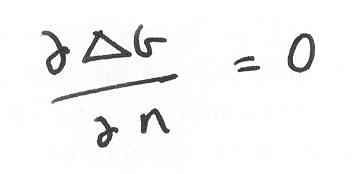 ∂ΔG
∂n = 0